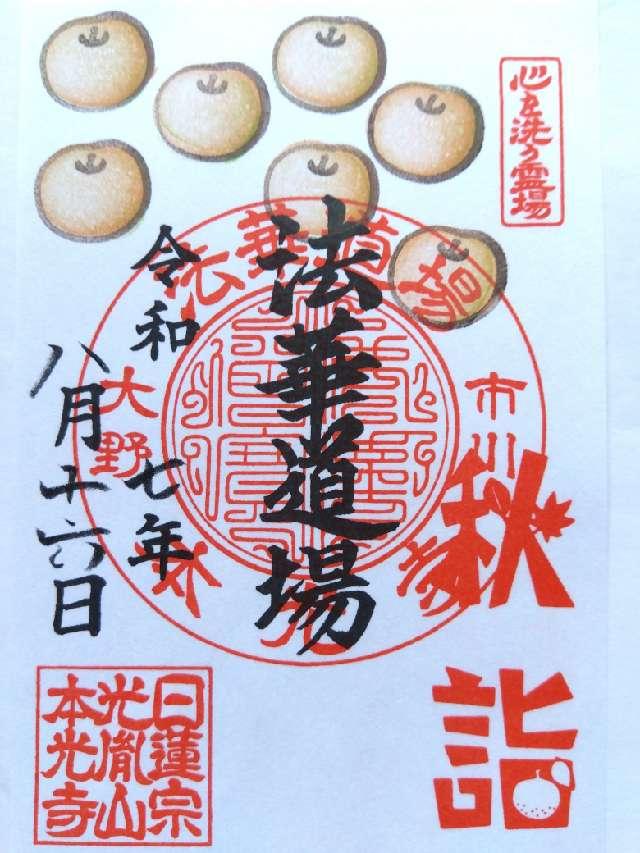 心を洗う霊場
法華道場
市川
大野
本光寺
法華道場
秋詣
令和七年
八月十六日
日蓮宗
光胤山
本光寺